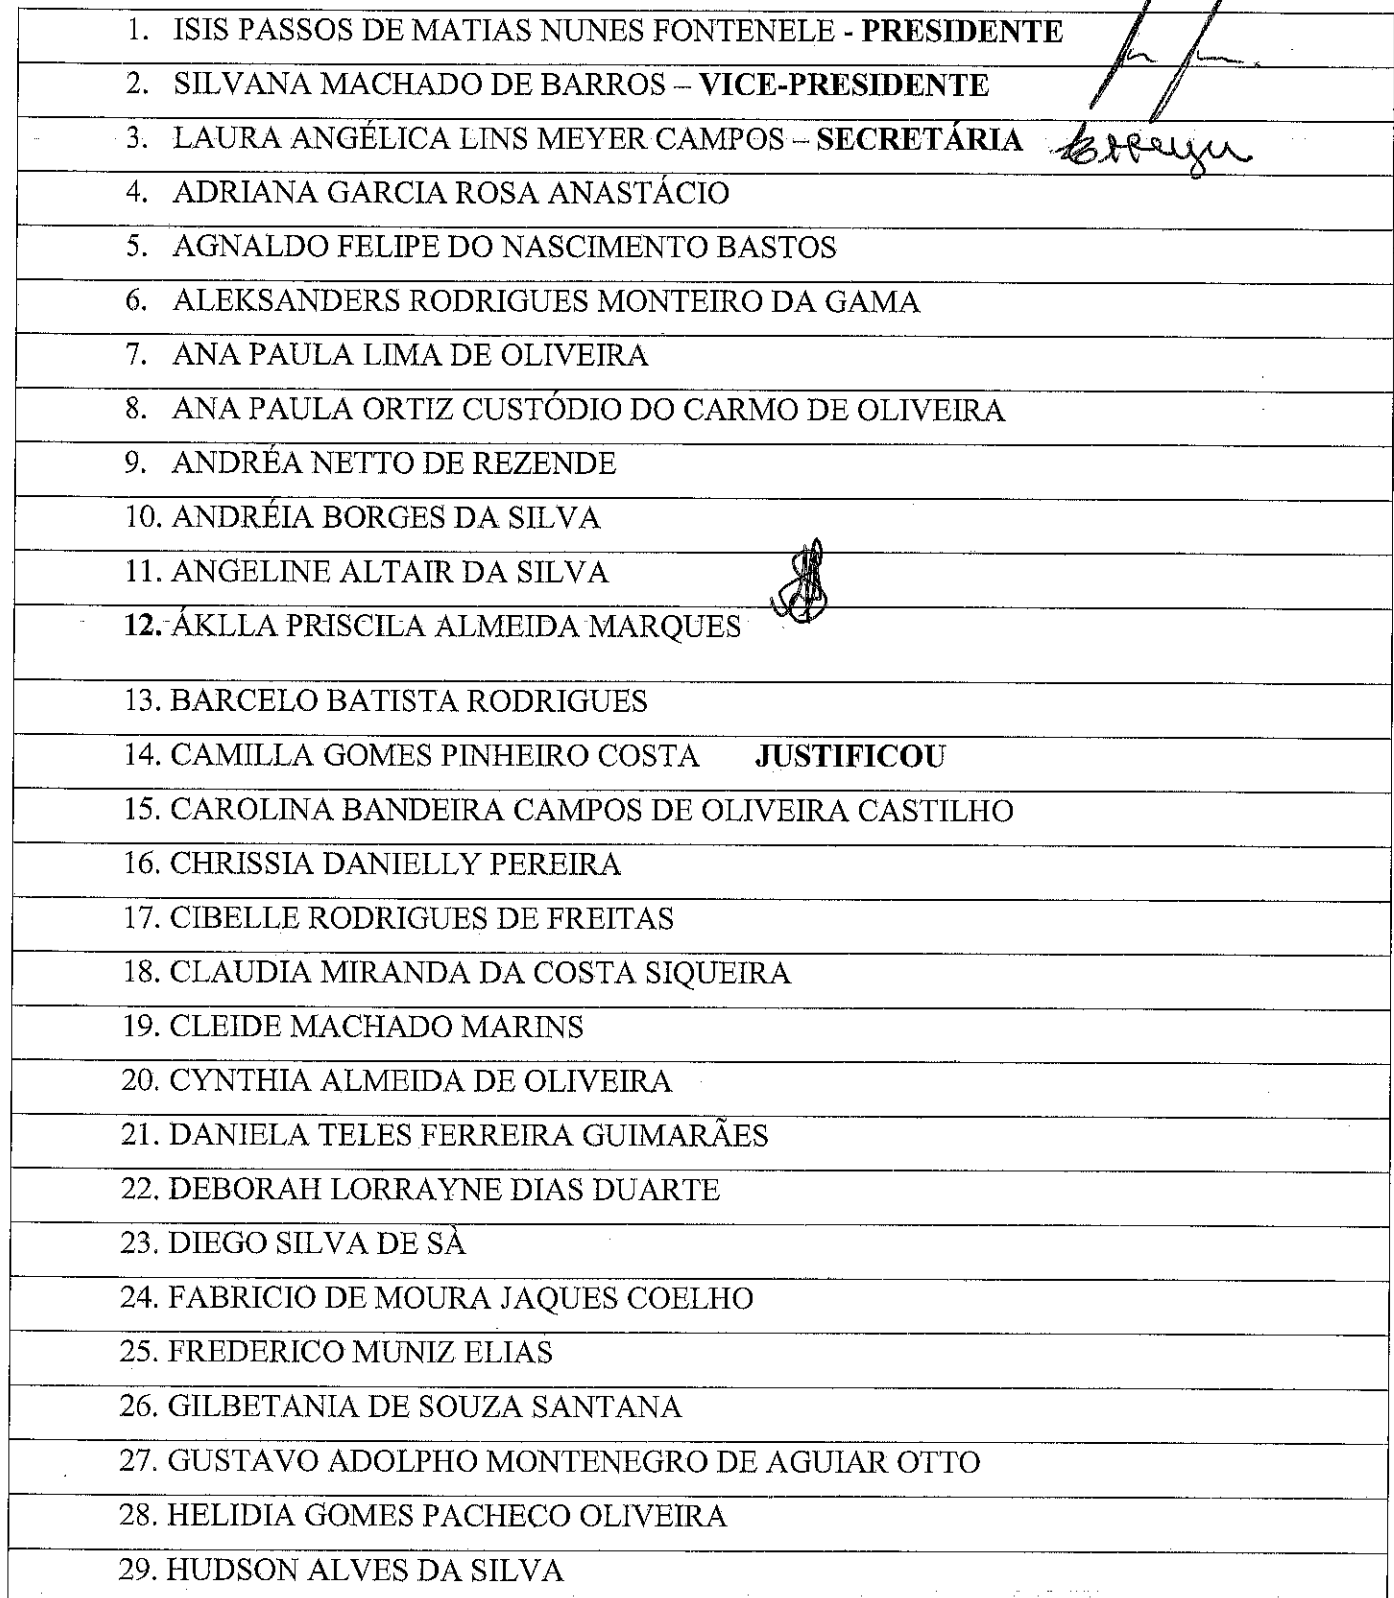 1. ISIS PASSOS DE MATIAS NUNES FONTENELE - PRESIDENTE
2. SILVANA MACHADO DE BARROS – VICE-PRESIDENTE
3. LAURA ANGÉLICA LINS MEYER CAMPOS – SECRETÁRIA
4. ADRIANA GARCIA ROSA ANASTÁCIO
5. AGNALDO FELIPE DO NASCIMENTO BASTOS
6. ALEKSANDERS RODRIGUES MONTEIRO DA GAMA
7. ANA PAULA LIMA DE OLIVEIRA
8. ANA PAULA ORTIZ CUSTÓDIO DO CARMO DE OLIVEIRA
9. ANDRÉA NETTO DE REZENDE
10. ANDRÉIA BORGES DA SILVA
11. ANGELINE ALTAIR DA SILVA
12. ÁKLLA PRISCILA ALMEIDA MARQUES
13. BARCELO BATISTA RODRIGUES
14. CAMILLA GOMES PINHEIRO COSTA JUSTIFICOU
15. CAROLINA BANDEIRA CAMPOS DE OLIVEIRA CASTILHO
16. CHRISSIA DANIELLY PEREIRA
17. CIBELLE RODRIGUES DE FREITAS
18. CLAUDIA MIRANDA DA COSTA SIQUEIRA
19. CLEIDE MACHADO MARINS
20. CYNTHIA ALMEIDA DE OLIVEIRA
21. DANIELA TELES FERREIRA GUIMARÃES
22. DEBORAH LORRAYNE DIAS DUARTE
23. DIEGO SILVA DE SÀ
24. FABRICIO DE MOURA JAQUES COELHO
25. FREDERICO MUNIZ ELIAS
26. GILBETANIA DE SOUZA SANTANA
27. GUSTAVO ADOLPHO MONTENEGRO DE AGUIAR OTTO
28. HELIDIA GOMES PACHECO OLIVEIRA
29. HUDSON ALVES DA SILVA